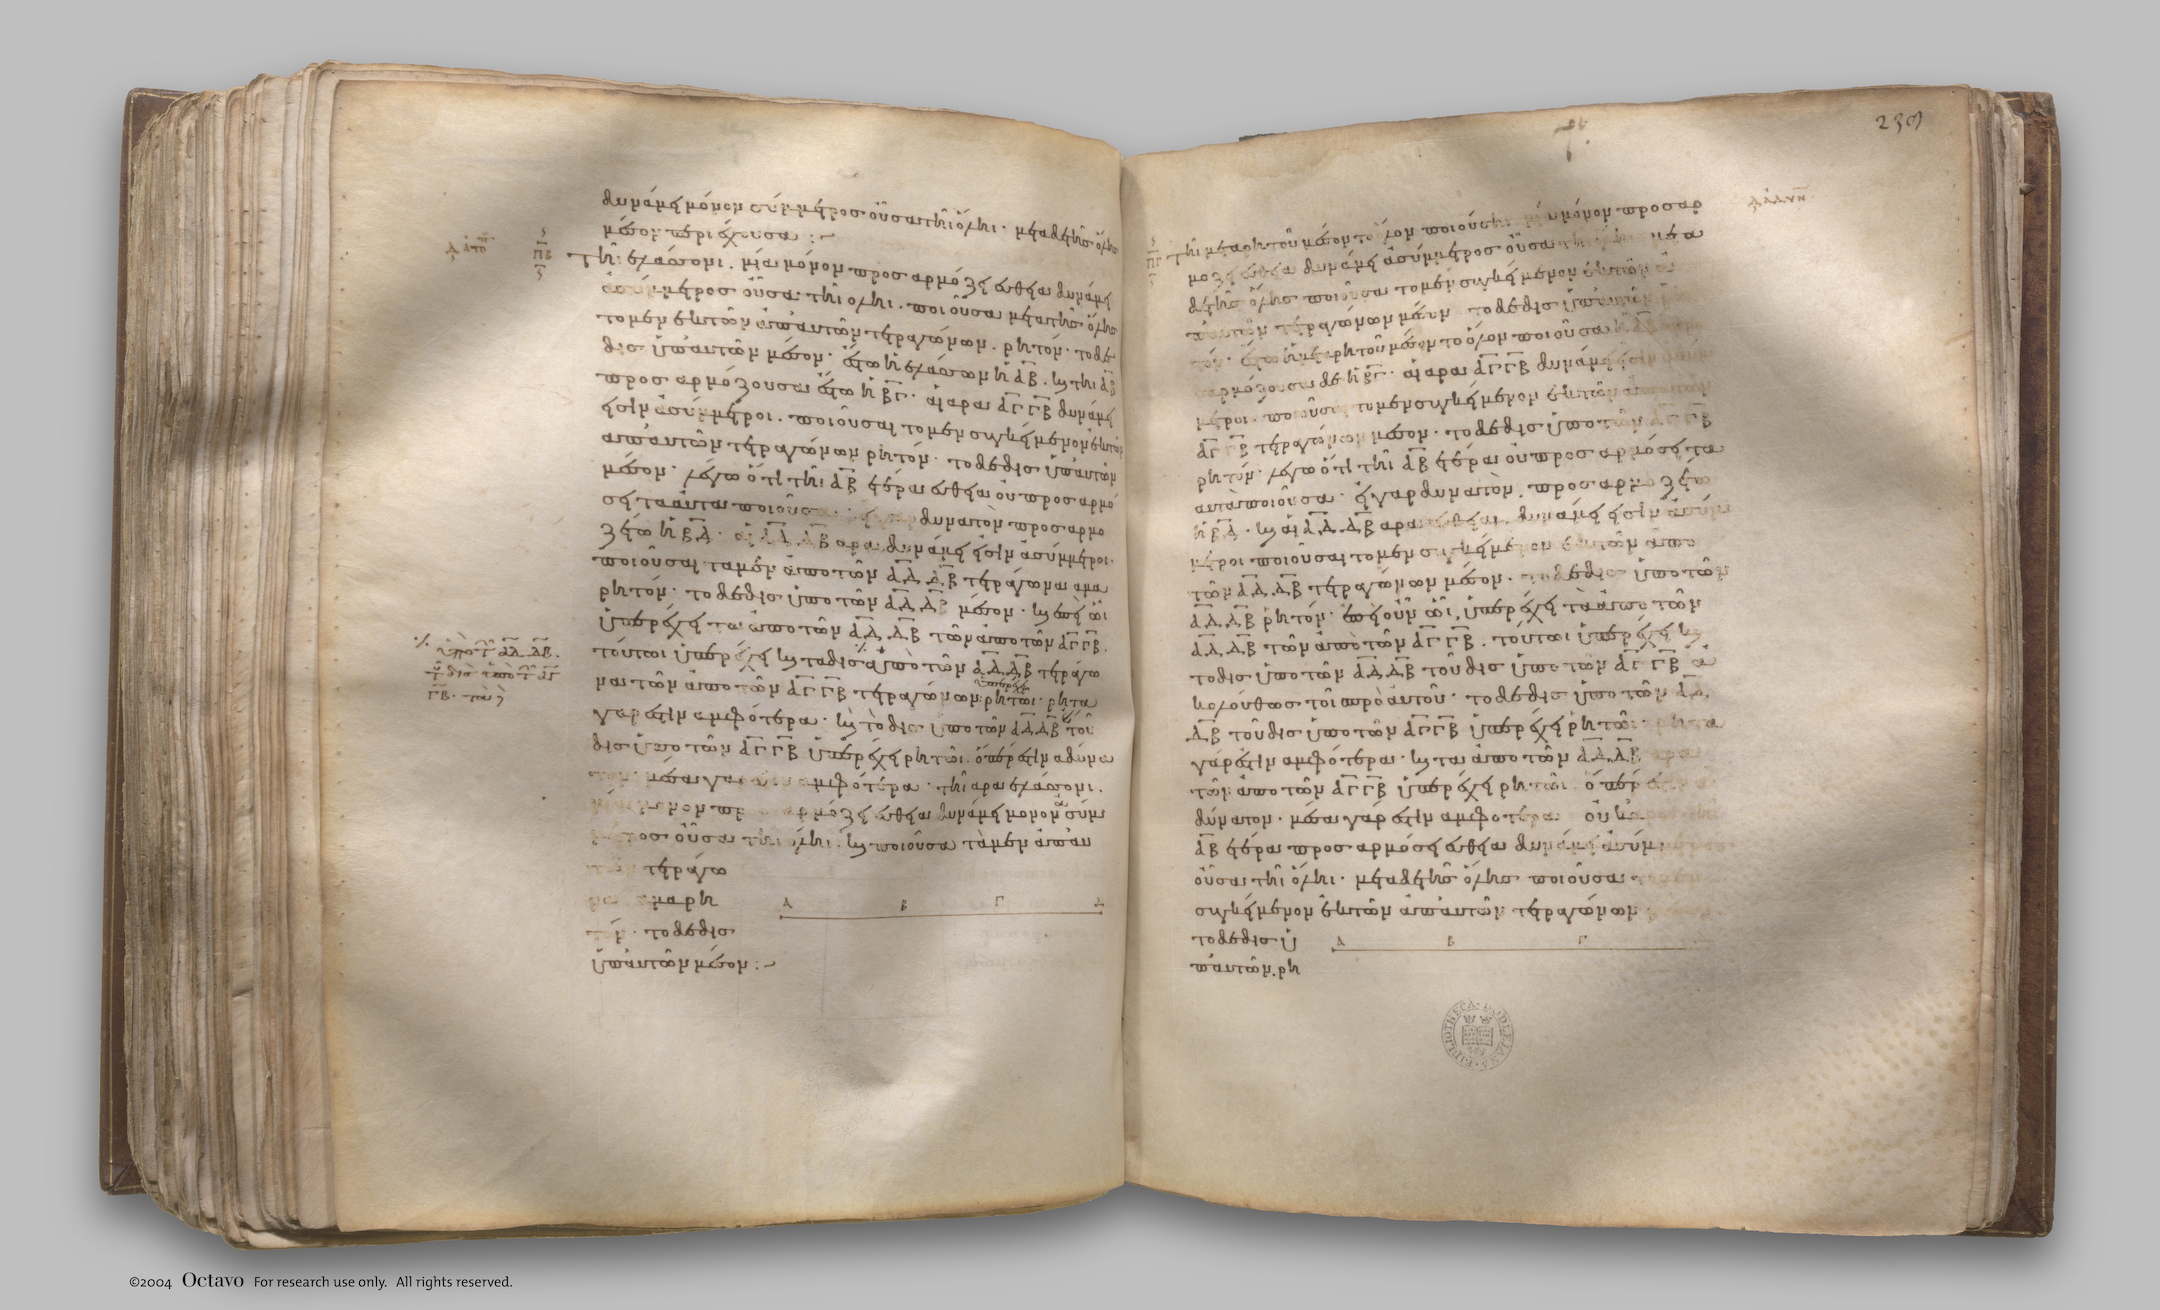 δυνάμει μόνον σύμμετρος οὖσα τῆι ὅληι · μετὰ δὲ τῆς ὅλης
μέσον περιέχουσα :~
πβ
Τῆι ἐλάσσονι . μία μόνον προσαρμόζει εὐθεῖα δυνάμει
ἀσύμμετρος οὖσα τῆι ὅληι . ποιοῦσα μετὰ τῆς ὅλης
τὸ μὲν ἐκ τῶν ἀπ' αὐτῶν τετραγώνων . ῥητόν · τὸ δὲ
δὶς ὑπ' αὐτῶν μέσον · ἔστω ἡ ἐλάσσων ἡ ΑΒ . καὶ τῆι ΑΒ
προσαρμόζουσα ἔστω ἡ ΒΓ · αἱ ἄρα ΑΓ ΓΒ δυνάμει
εἰσὶν ἀσύμμετροι . ποιοῦσαι τὸ μὲν συγκείμενον ἐκ τῶν
ἀπ' αὐτῶν τετραγώνων ῥητόν · τὸ δὲ δὶς ὑπ' αὐτῶν
μέσον · λέγω ὅτι τῆι ΑΒ ἑτέρα εὐθεῖα οὐ προσαρμό
σει τὰ αὐτὰ ποιοῦσα · εἰ γὰρ δυνατὸν προσαρμο
ζέτω ἡ ΒΔ · αἱ ΑΔ ΔΒ ἄρα δυνάμει εἰσὶν ἀσύμμετροι .
ποιοῦσαι τὰ μὲν ἀπὸ τῶν ΑΔ ΔΒ τετράγωνα ἅμα
ῥητόν · τὸ δὲ δὶς ὑπὸ τῶν ΑΔ ΔΒ μέσον · καὶ ἐπεὶ ὧι
ὑπερέχει τὰ ἀπὸ τῶν ΑΔ ΔΒ τῶν ἀπὸ τῶν ΑΓ ΓΒ .
τούτωι ὑπερέχει καὶ τὸ δὶς ὑπὸ τῶν ΑΔ ΔΒ τετράγω
να τῶν ἀπὸ τῶν ΑΓ ΓΒ τετραγώνων ὑπερέχει ῥητῶι · ῥητὰ
γάρ ἐστιν ἀμφότερα · καὶ τὸ δὶς ὑπὸ τῶν ΑΔ ΔΒ τοῦ
δὶς ὑπὸ τῶν ΑΓ ΓΒ ὑπερέχει ῥητῶι . ὅπερ ἐστὶν ἀδύνα
τον · μέσα γάρ ἀμφότερα · τῆι ἄρα ἐλάσσονι .
μία μόνον προσαρμόζει εὐθεῖα δυνάμει μόνον ἀσύμ
μετρος οὖσα τῆι ὅληι . καὶ ποιοῦσα τὰ μὲν ἀπ' αὐ
τῶν τετράγω
να ἅμα ῥη
τόν · τὸ δὲ δὶς
ὑπ' αὐτῶν μέσον :~
Α Β Γ Δ
239
πγ
Τῆι μετὰ ῥητοῦ μέσον τὸ ὅλον ποιούσηι μία μόνον προσαρ
μόζει εὐθεῖα δυνάμει ἀσύμμετρος οὖσα τῆι ὅληι μετὰ
δὲ τῆς ὅλης ποιοῦσα τὸ μὲν συγκείμενον ἐκ τῶν ἀ
π' αὐτῶν τετραγώνων μέσον τὸ δὲ δὶς ὑπ' αὐτῶν ῥη
τόν · ἔστω ἡ μετὰ ῥητοῦ μέσον τὸ ὅλον ποιοῦσα ἡ ΑΒ
αρμόζουσα δὲ ἡ ΒΓ · αἱ ἄρα ΑΓ ΓΒ δυνάμει εἰσὶν ἀσύμ
μετροι . ποιοῦσαι τὸ μὲν συγκείμενον ἐκ τῶν ἀπὸ τῶν
ΑΓ ΓΒ τετραγώνων μέσον · τὸ δὲ δὶς ὑπὸ τῶν ΑΓ ΓΒ
ῥητόν · λέγω ὅτι τῆι ΑΒ ἑτέρα οὐ προσαρμόσει τὰ
αὐτὰ ποιοῦσα · εἰ γὰρ δυνατὸν . προσαρμοζέτω
ἡ ΒΔ · καὶ αἱ ΑΔ ΔΒ ἄρα εὐθεῖαι δυνάμει εἰσὶν ἀσύμ
μετροι ποιοῦσαι τὸ μὲν συγκείμενον ἐκ τῶν ἀπὸ
τῶν ΑΔ ΔΒ τετραγώνων μέσον · τὸ δὲ δὶς ὑπὸ τῶν
ΑΔ ΔΒ ῥητόν · ἐπεὶ οὖν ὧι ὑπερέχει τὰ ἀπὸ τῶν
ΑΔ ΔΒ τῶν ἀπὸ τῶν ΑΓ ΓΒ . τούτωι ὑπερέχει καὶ
τὸ δὶς ὑπὸ τῶν ΑΔ ΔΒ τοῦ δὶς ὑπὸ τῶν ΑΓ ΓΒ ἀ
κολούθως τοῖ πρὸ αὐτοῦ · τὸ δὲ δὶς ὑπὸ τῶν ΑΔ
ΔΒ τοῦ δὶς ὑπὸ τῶν ΑΓ ΓΒ ὑπερέχει ῥητῶι · ῥητὰ
γάρ ἐστιν ἀμφότερα · καὶ τὰ ἀπὸ τῶν ΑΔ ΔΒ ἄρα
τῶν ἀπὸ τῶν ΑΓ ΓΒ ὑπερέχει ῥητῶι · ὅπερ ἐστὶν ἀ
δύνατον · μέσα γάρ ἐστιν ἀμφότερα οὐκ ἄρα τῆι
ΑΒ ἑτέρα προσαρμόσει εὐθεῖα δυνάμει ἀσύμμετρος
οὖσα τῆι ὅληι · μετὰ δὲ τῆς ὅλης ποιοῦσα
συγκείμενον ἐκ τῶν ἀπ' αὐτῶν τετραγώνων
τὸ δὲ δὶς ὑ
π' αὐτῶν . ῥη
Α Β Γ
BIBLIOTHECA BODLEIANA
©2004 Octavo For research use only. All rights reserved.